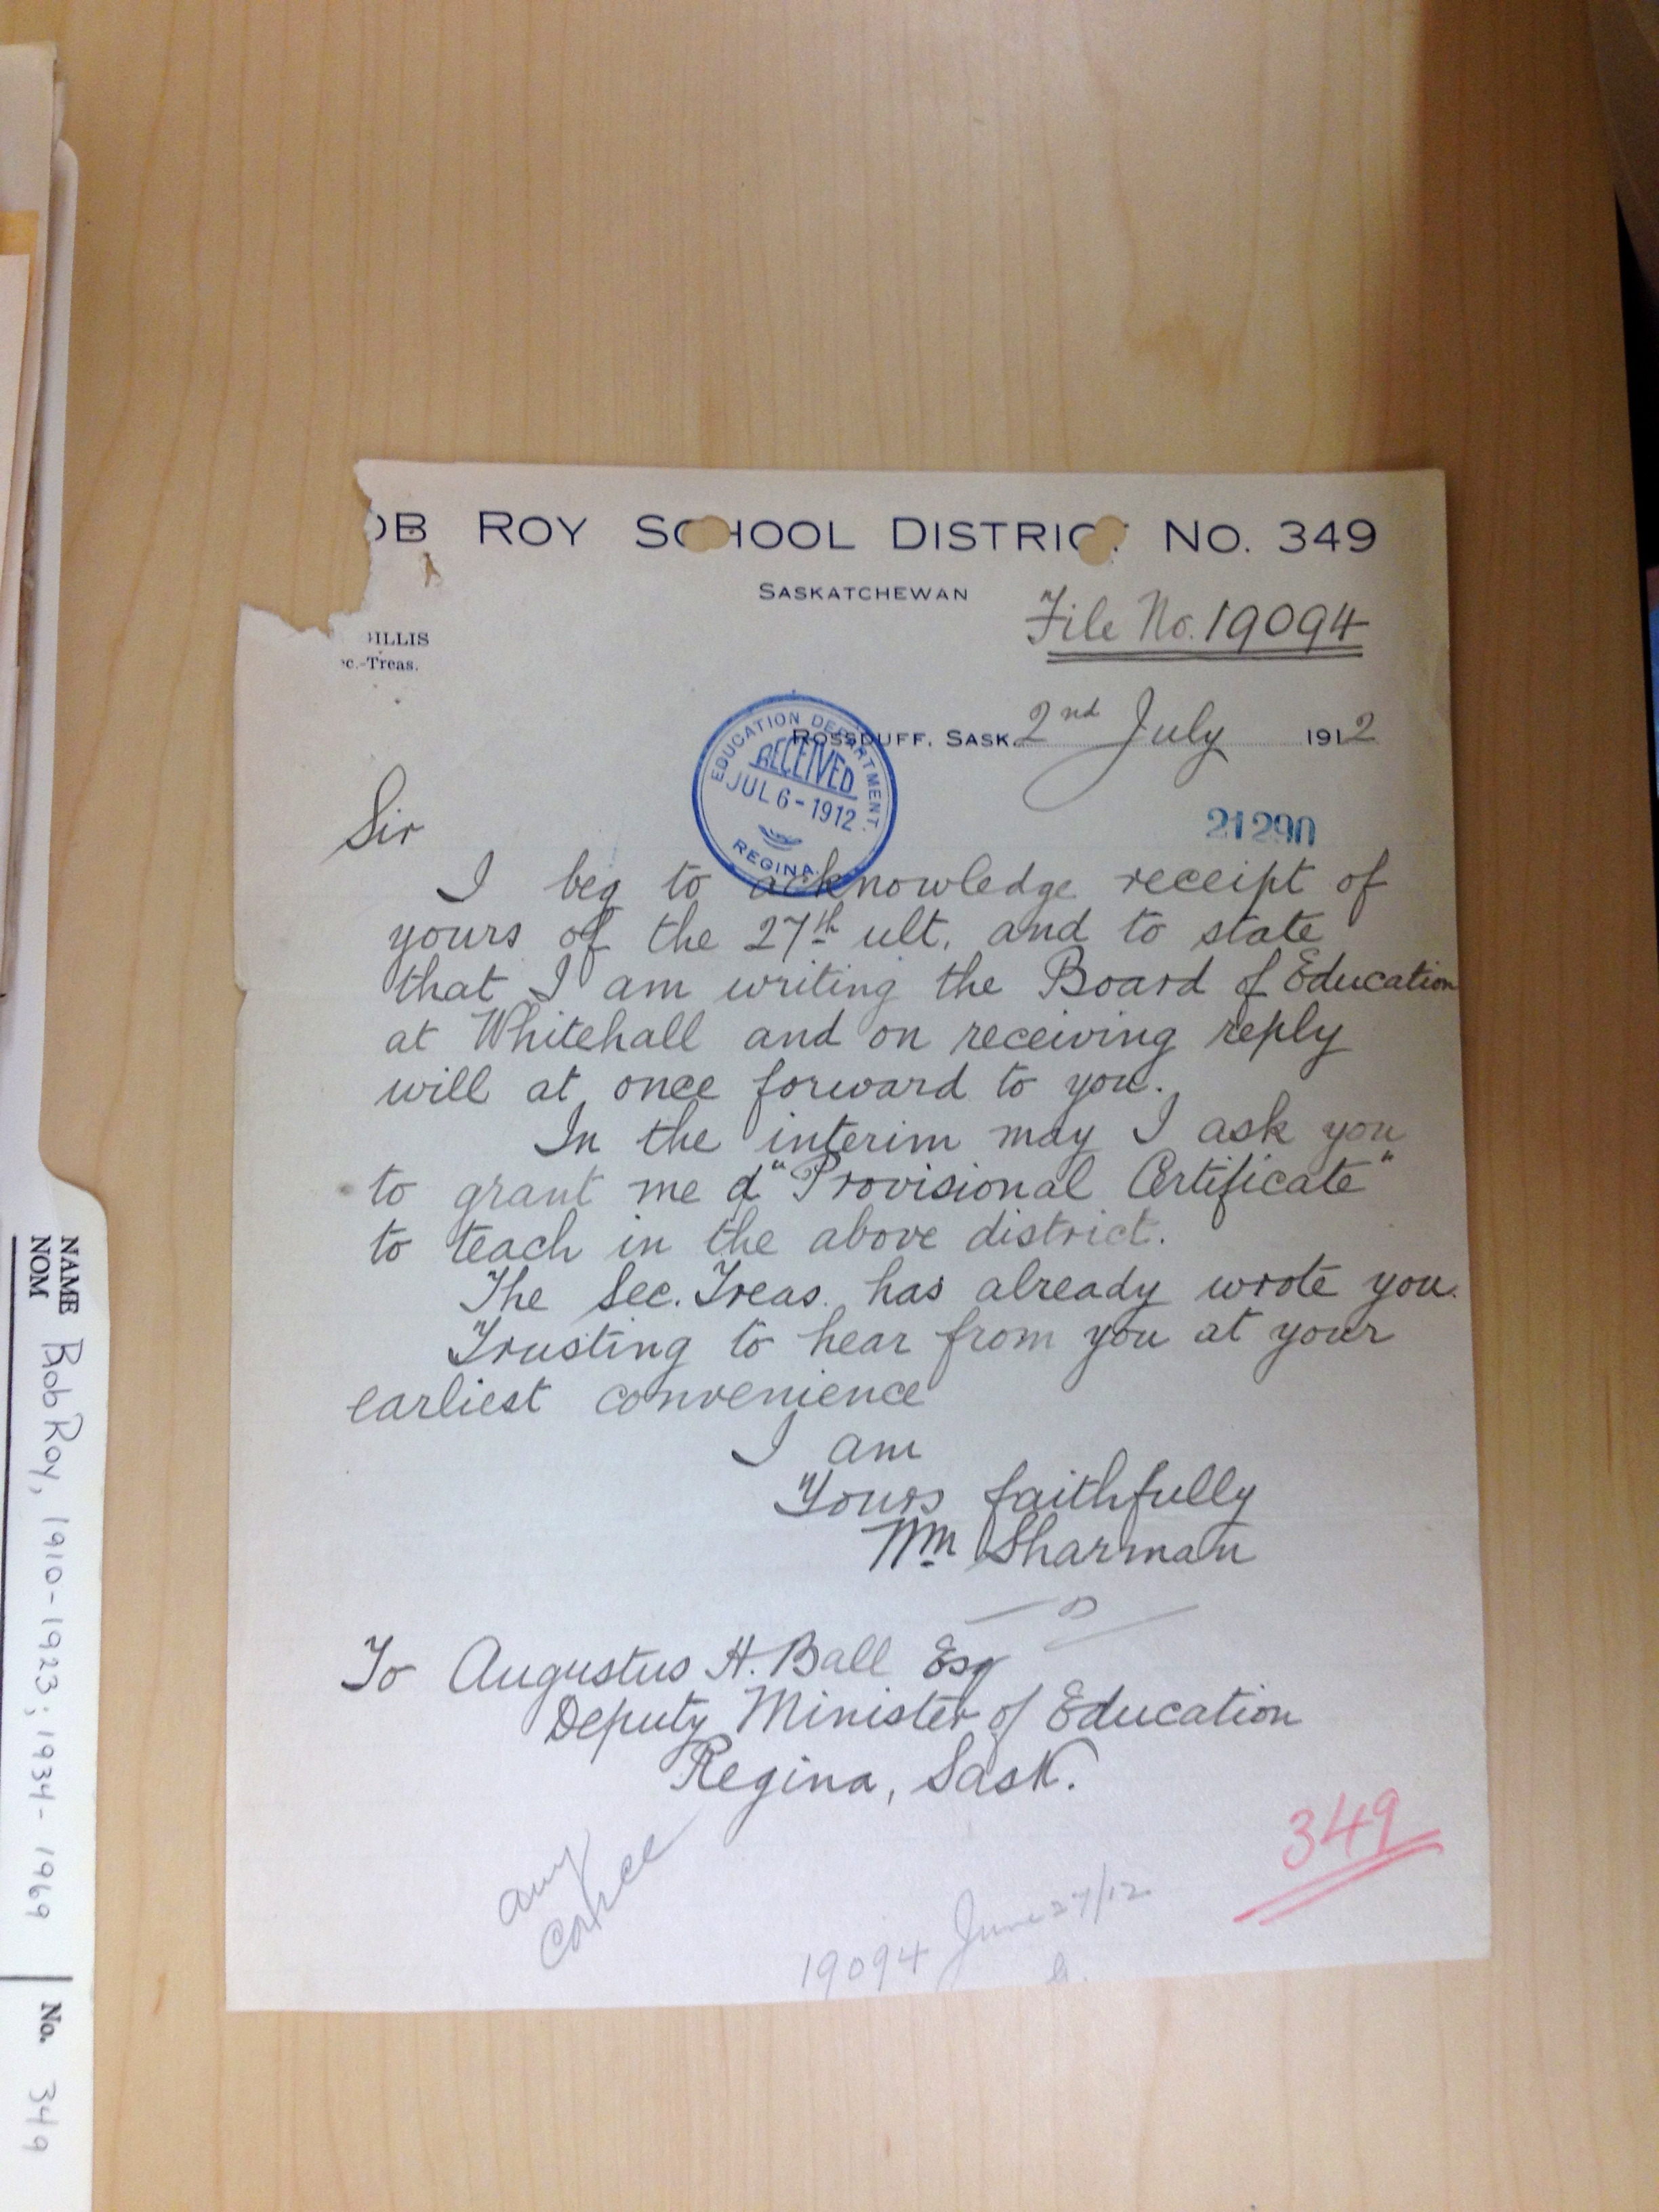 OB ROY SCHOOL DISTRICT NO. 349
SASKATCHEWAN
File No. 19094
ILLIS
ec.-Treas.
ROSSDUFF, SASK. 2nd July 1912
EDUCATION DEPARTMENT.
RECEIVED
JUL 6 - 1912
REGINA.
21290
Sir
I beg to acknowledge receipt of
yours of the 27th ult. and to state
that I am writing the Board of Education
at Whitehall and on receiving reply
will at once forward to you.
In the interim may I ask you
to grant me a "Provisional Certificate"
to teach in the above district.
The Sec. Treas. has already wrote you.
Trusting to hear from you at your
earliest convenience
I am
Yours faithfully
Wm Sharman
To Augustus H. Ball Esq
Deputy Minister of Education
Regina, Sask.
349
19094 June 27/12
NAME
NOM
Bob Roy, 1910-1923; 1934-1969
No. 349